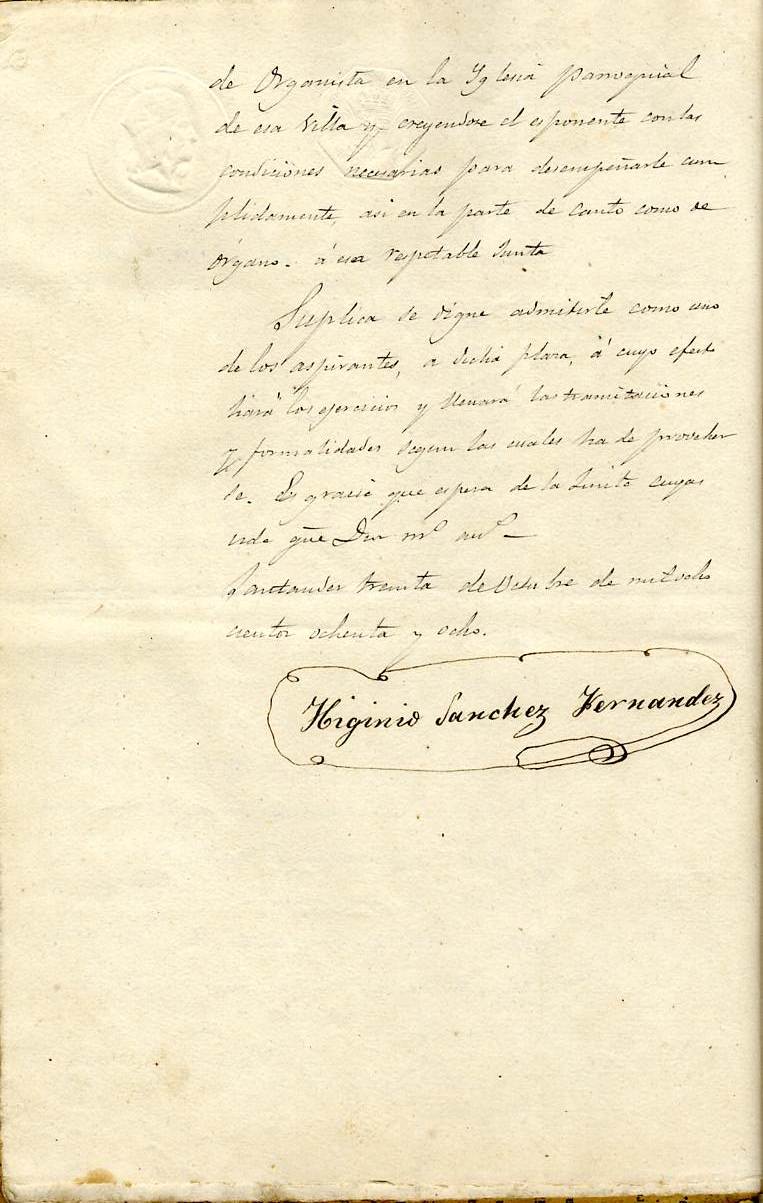 de Organista en la Yglesia parroquial
de esa Villa y creyendose el esponente con las
condiciones necesarias para desempeñarle cum
plidamente, asi en la parte de canto como de
órgano. á esa respetable Junta
Suplica se digne admitirle como uno
de los aspirantes, a dicha plaza, á cuyo efecto
hará los ejercicios y llenará las tramitaciones
y formalidades segun las cuales ha de proveher
se. Es gracia que espera de la Junta cuya
vida gñe Dios mº. auº.
Santander treinta de Octubre de mil ocho
cientos ochenta y ocho.
Higinio Sanchez Fernandez